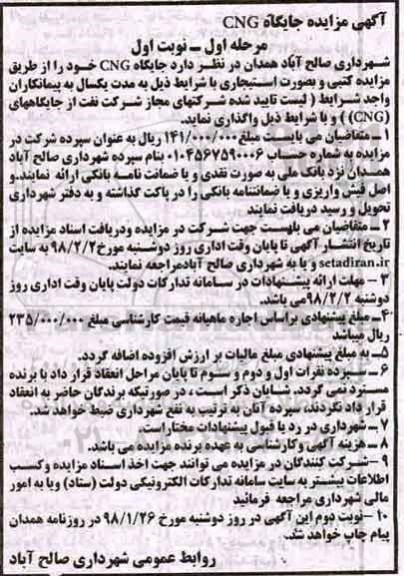 آگهی مزایده جایگاه CNG
مرحله اول ــ نوبت اول
شهرداری صالح آباد همدان در نظر دارد جایگاه CNG خود را از طریق
مزایده کتبی و بصورت استیجاری با شرایط ذیل به مدت یکسال به پیمانکاران
واجد شرایط ( لیست تایید شده شرکتهای مجاز شرکت نفت از جایگاههای
(CNG) ) و با شرایط ذیل واگذاری نماید.
۱ــ متقاضیان می بایست مبلغ ۱۴۱/۰۰۰/۰۰۰ ریال به عنوان سپرده شرکت در
مزایده به شماره حساب ۰۱۰۴۵۶۷۵۹۰۰۰۶ بنام سپرده شهرداری صالح آباد
همدان نزد بانک ملی به صورت نقدی و یا ضمانت نامه بانکی ارائه نمایند.و
اصل فیش واریزی و یا ضمانتنامه بانکی را در پاکت گذاشته و به دفتر شهرداری
تحویل و رسید دریافت نمایند
۲ــ متقاضیان می بایست جهت شرکت در مزایده ودریافت اسناد مزایده از
تاریخ انتشار آگهی تا پایان وقت اداری روز دوشنبه مورخ ۹۸/۲/۲ به سایت
setadiran.ir و یا به شهرداری صالح آبادمراجعه نمایند.
۳ــ مهلت ارائه پیشنهادات در سامانه تدارکات دولت پایان وقت اداری روز
دوشنبه ۹۸/۲/۲ می باشد.
۴ــ مبلغ پیشنهادی براساس اجاره ماهیانه قیمت کارشناسی مبلغ ۲۳۵/۰۰۰/۰۰۰
ریال میباشد
۵ــ به مبلغ پیشنهادی مبلغ مالیات بر ارزش افزوده اضافه گردد.
۶ــ سپرده نفرات اول و دوم و سوم تا پایان مراحل انعقاد قرار داد با برنده
مسترد نمی گردد. شایان ذکر است ، در صورتیکه برندگان حاضر به انعقاد
قرار داد نگردند، سپرده آنان به ترتیب به نفع شهرداری ضبط خواهد شد.
۷ــ شهرداری در رد یا قبول پیشنهادات مختاراست.
۸ــ هزینه آگهی وکارشناسی به عهده برنده مزایده می باشد.
۹ــ شرکت کنندگان در مزایده می توانند جهت اخذ اسناد مزایده وکسب
اطلاعات بیشتر به سایت سامانه تدارکات الکترونیکی دولت (ستاد) ویا به امور
مالی شهرداری مراجعه فرمائید
۱۰ــ نوبت دوم این آگهی در روز دوشنبه مورخ ۹۸/۱/۲۶ در روزنامه همدان
پیام چاپ خواهد شد.
روابط عمومی شهرداری صالح آباد